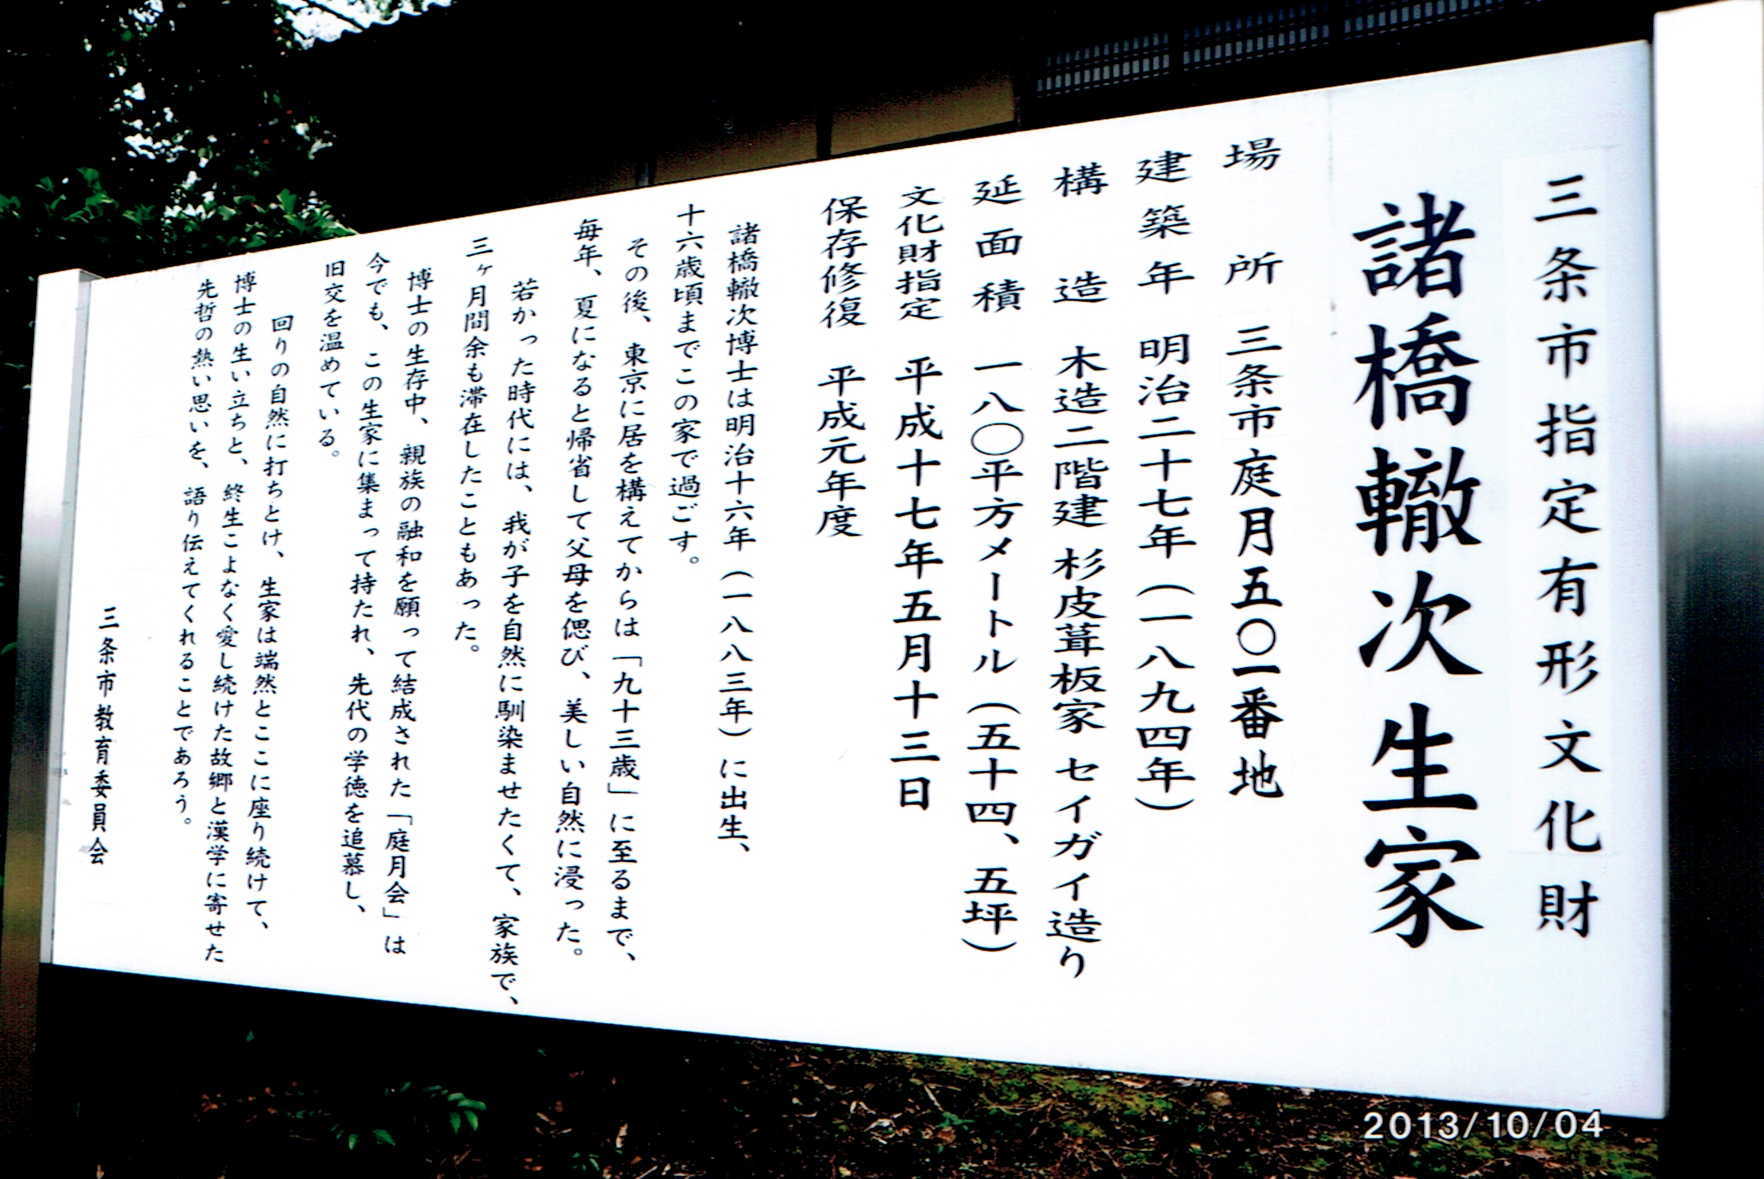 三条市指定有形文化財
諸橋轍次生家
場所 三条市庭月五〇一番地
建築年 明治二十七年(一八九四年)
構造 木造二階建 杉皮葺板家 セイガイ造り
延面積 一八〇平方メートル(五十四、五坪)
文化財指定 平成十七年五月十三日
保存修復 平成元年度
諸橋轍次博士は明治十六年(一八八三年)に出生、
十六歳頃までこの家で過ごす。
その後、東京に居を構えてからは「九十三歳」に至るまで、
毎年、夏になると帰省して父母を偲び、美しい自然に浸った。
若かった時代には、我が子を自然に馴染ませたくて、家族で、
三ヶ月間余も滞在したこともあった。
博士の生存中、親族の融和を願って結成された「庭月会」は
今でも、この生家に集まって持たれ、先代の学徳を追慕し、
旧交を温めている。
回りの自然に打ちとけ、生家は端然とここに座り続けて、
博士の生い立ちと、終生こよなく愛し続けた故郷と漢学に寄せた
先哲の熱い思いを、語り伝えてくれることであろう。
三条市教育委員会
2013/10/04